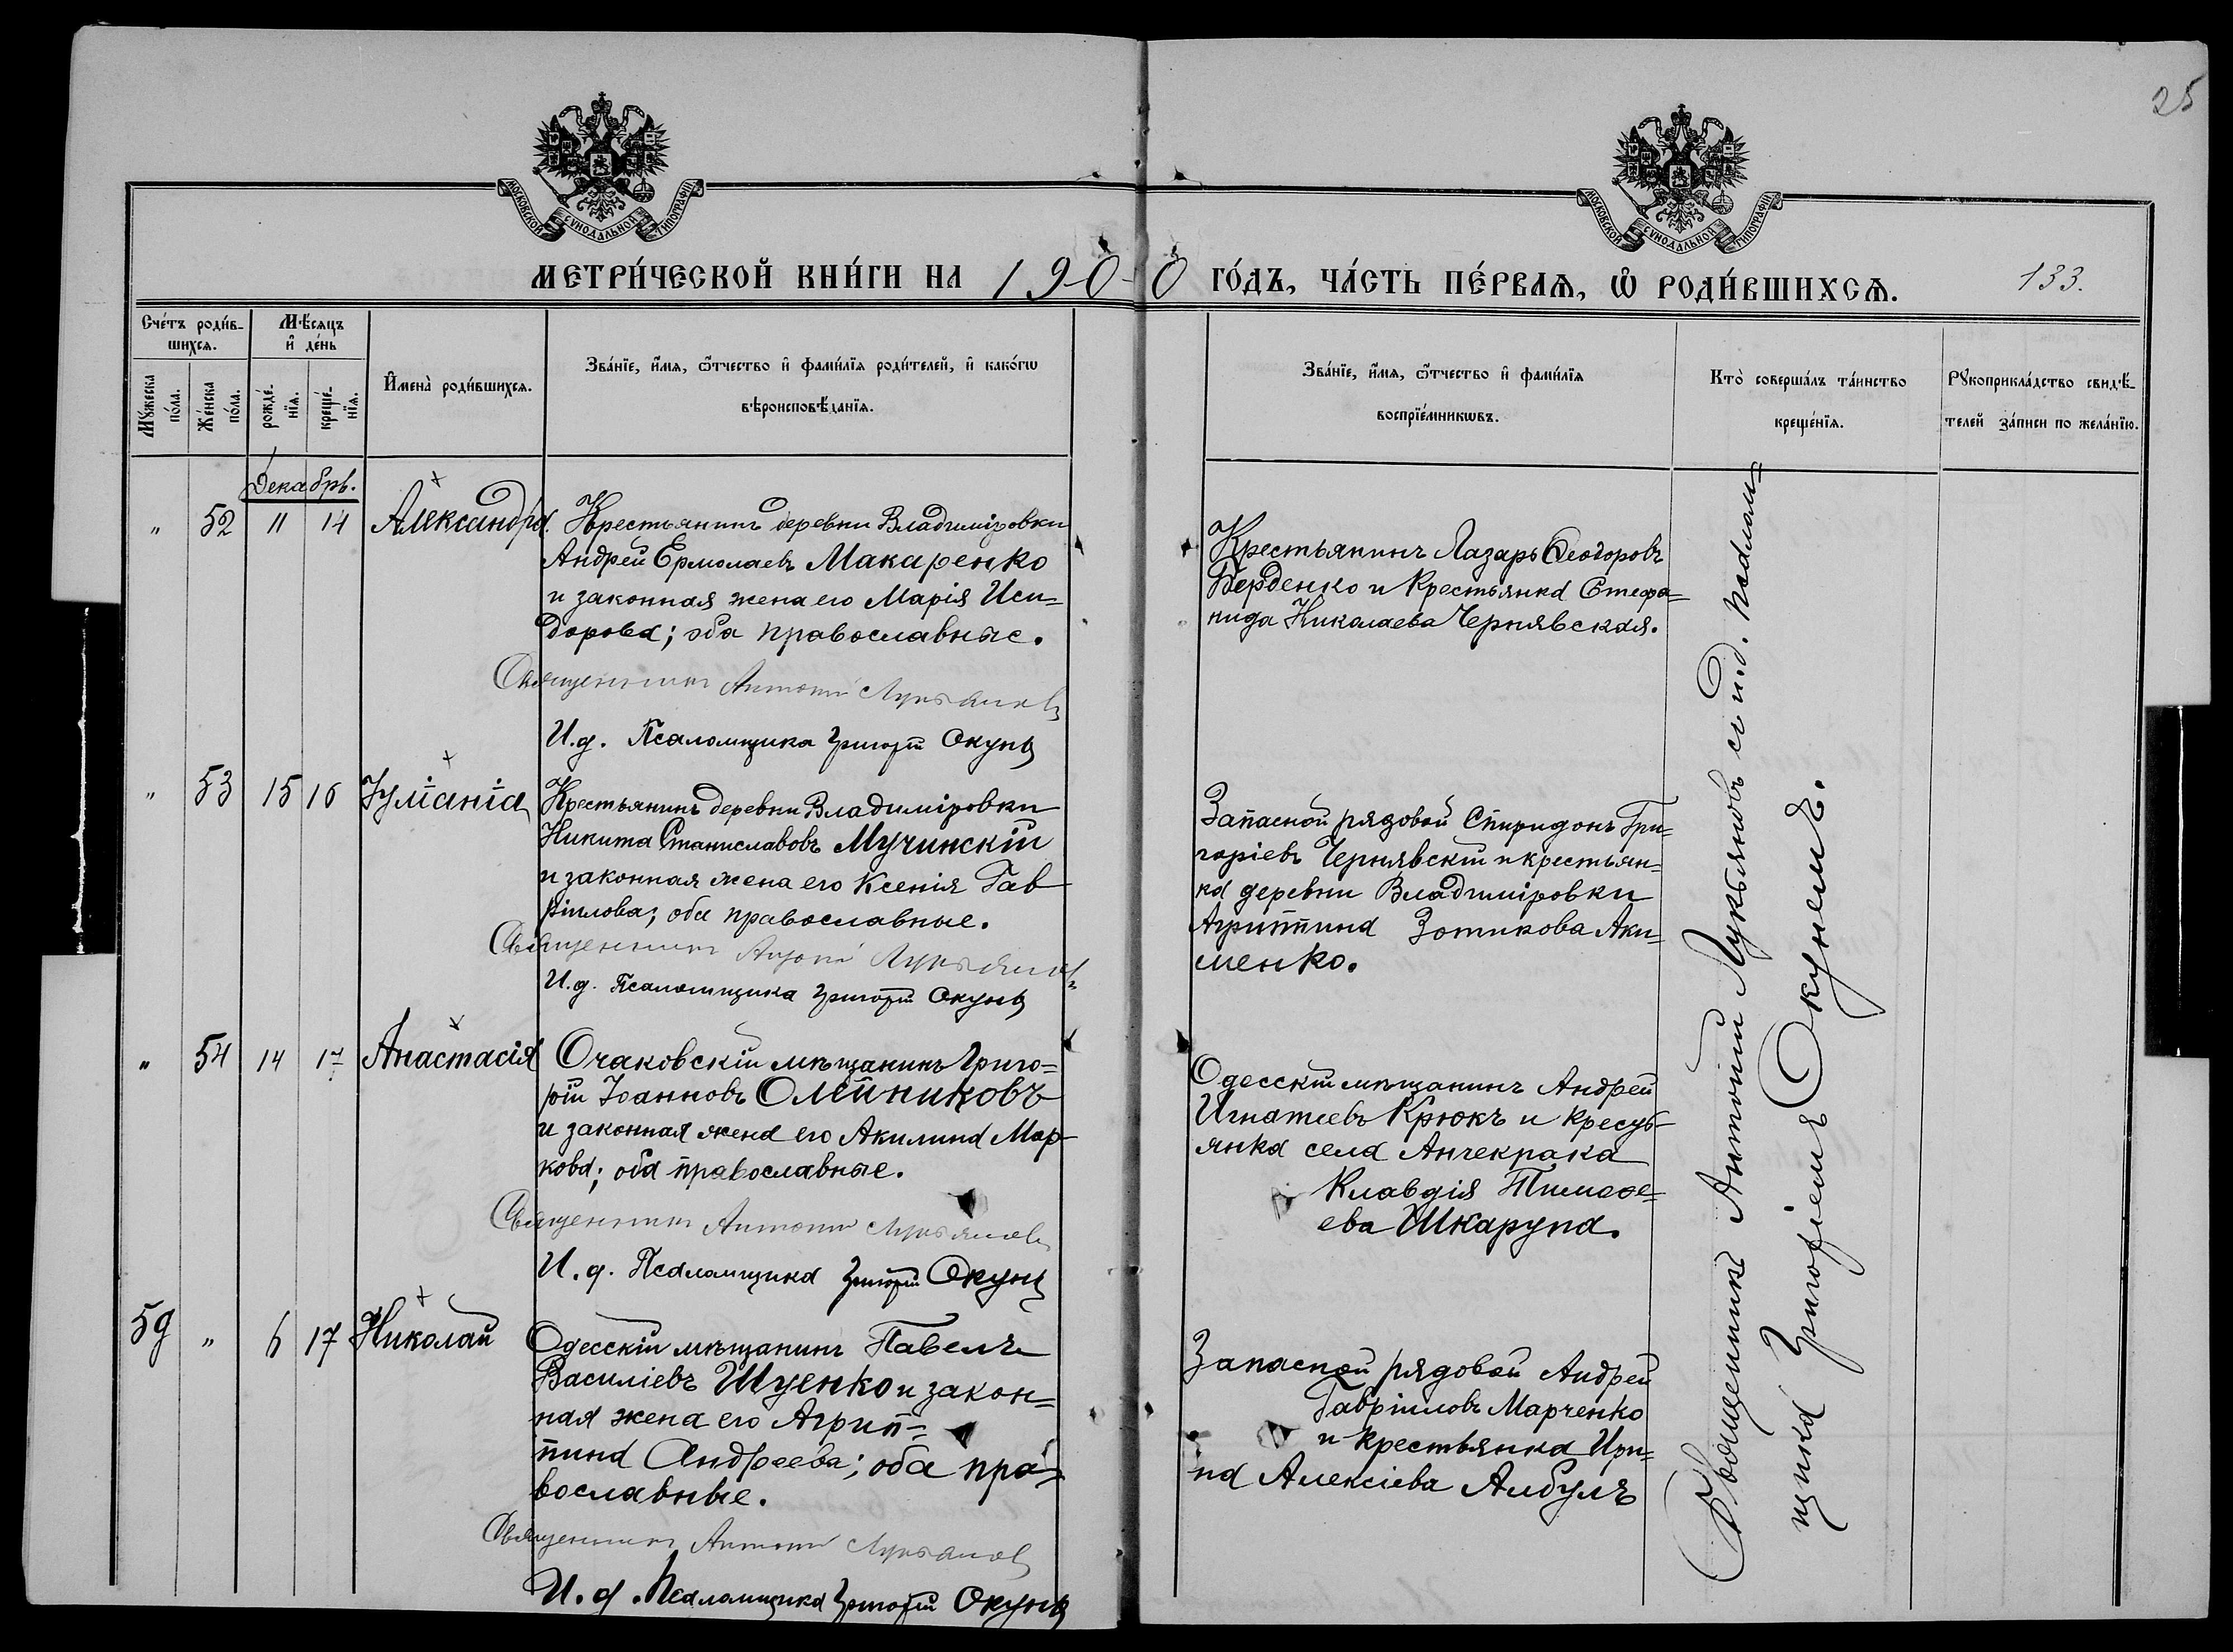 25
МОСКОВСКОЙ СѴНОДАЛЬНОЙ ТИПОГРАФІИ
МОСКОВСКОЙ СѴНОДАЛЬНОЙ ТИПОГРАФІИ
МЕТРИ́ЧЕСКОЙ КНИ́ГИ НА 1900 ГО́ДЪ, ЧА́СТЬ ПЕ́РВАѦ, Ѡ҆ РОДИ́ВШИХСѦ.
133.
Сче́тъ роди́в-
шихсѧ.
Мꙋ́жеска по́ла.
Же́нска по́ла.
Мѣ́сѧцъ
и҆ де́нь
рожде́-
нїѧ.
креще́-
нїѧ.
И҆мена̀ роди́вшихсѧ.
Зва́нїе, и҆́мѧ, ѻ҆́тчество и҆ фами́лїѧ роди́телей, и҆ како́гѡ
вѣроисповѣ́данїѧ.
Зва́нїе, и҆́мѧ, ѻ҆́тчество и҆ фами́лїѧ
воспрїе́мникѡвъ.
Кто̀ соверша́лъ та́инство
креще́нїѧ.
Рꙋкоприкла́дство свидѣ́-
телей за́писи по жела́нїю.
Декабрь.
„ 52 11 14 Александра.
Крестьянинъ деревни Владиміровки
Андрей Ермолаевъ Макаренко
и законная жена его Марія Иси=
дорова; оба православные.
Священникъ Антоній Лукьяновъ
И.д. Псаломщика Григорій Окунь
Крестьянинъ Лазарь Ѳеодоровъ
Берденко и крестьянка Стефа=
нида Николаева Чернявская.
„ 53 15 16 Іуліанія
Крестьянинъ деревни Владиміровки
Никита Станиславовъ Мучинскій
и законная жена его Ксенія Гав
ріилова; оба православные.
Священникъ Антоній Лукьяновъ
И.д. Псаломщика Григорій Окунь
Запасной рядовой Спиридонъ Гри=
горіевъ Чернявскій и крестьян=
ка деревни Владиміровки
Агриппина Зотикова Аки=
менко.
„ 54 14 17 Анастасія
Очаковскій мѣщанинъ Григо=
рій Іоанновъ Олейниковъ
и законная жена его Акилина Мар-
кова; оба православные.
Священникъ Антоній Лукьяновъ
И.д. Псаломщика Григорій Окунь
Одесскій мѣщанинъ Андрей
Игнатіевъ Крюкъ и кресть-
янка села Анчекрака
Клавдія Тимоѳе=
ева Шкарупа.
59 „ 6 17 Николай
Одесскій мѣщанинъ Павелъ
Василіевъ Шуенко и закон=
ная жена его Агрип=
пина Андреева; оба пра=
вославные.
Священникъ Антоній Лукьяновъ
И.д. Псаломщика Григорій Окунь
Запасной рядовой Андрей
Гавріиловъ Марченко
и крестьянка Ири=
на Алексіева Албулъ
Священникъ Антоній Лукьяновъ съ и.д. псалом=
щика Григоріемъ Окунемъ.